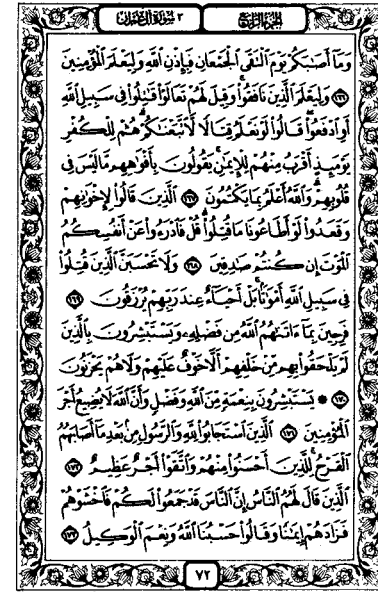 الجزء الرابع
٣ سورة آل عمران
وَمَآ أَصَٰبَكُمۡ يَوۡمَ ٱلۡتَقَى ٱلۡجَمۡعَانِ فَبِإِذۡنِ ٱللَّهِ وَلِيَعۡلَمَ ٱلۡمُؤۡمِنِينَ
١٦٦ وَلِيَعۡلَمَ ٱلَّذِينَ نَافَقُواْۚ وَقِيلَ لَهُمۡ تَعَالَوۡاْ قَٰتِلُواْ فِي سَبِيلِ ٱللَّهِ
أَوِ ٱدۡفَعُواْۖ قَالُواْ لَوۡ نَعۡلَمُ قِتَالٗا لَّٱتَّبَعۡنَٰكُمۡۗ هُمۡ لِلۡكُفۡرِ
يَوۡمَئِذٍ أَقۡرَبُ مِنۡهُمۡ لِلۡإِيمَٰنِۚ يَقُولُونَ بِأَفۡوَٰهِهِم مَّا لَيۡسَ فِي
قُلُوبِهِمۡۚ وَٱللَّهُ أَعۡلَمُ بِمَا يَكۡتُمُونَ ١٦٧ ٱلَّذِينَ قَالُواْ لِإِخۡوَٰنِهِمۡ
وَقَعَدُواْ لَوۡ أَطَاعُونَا مَا قُتِلُواْۗ قُلۡ فَٱدۡرَءُواْ عَنۡ أَنفُسِكُمُ
ٱلۡمَوۡتَ إِن كُنتُمۡ صَٰدِقِينَ ١٦٨ وَلَا تَحۡسَبَنَّ ٱلَّذِينَ قُتِلُواْ
فِي سَبِيلِ ٱللَّهِ أَمۡوَٰتَۢاۚ بَلۡ أَحۡيَآءٌ عِندَ رَبِّهِمۡ يُرۡزَقُونَ ١٦٩
فَرِحِينَ بِمَآ ءَاتَىٰهُمُ ٱللَّهُ مِن فَضۡلِهِۦ وَيَسۡتَبۡشِرُونَ بِٱلَّذِينَ
لَمۡ يَلۡحَقُواْ بِهِم مِّنۡ خَلۡفِهِمۡ أَلَّا خَوۡفٌ عَلَيۡهِمۡ وَلَا هُمۡ يَحۡزَنُونَ
١٧٠ ۞ يَسۡتَبۡشِرُونَ بِنِعۡمَةٖ مِّنَ ٱللَّهِ وَفَضۡلٖ وَأَنَّ ٱللَّهَ لَا يُضِيعُ أَجۡرَ
ٱلۡمُؤۡمِنِينَ ١٧١ ٱلَّذِينَ ٱسۡتَجَابُواْ لِلَّهِ وَٱلرَّسُولِ مِنۢ بَعۡدِ مَآ أَصَابَهُمُ
ٱلۡقَرۡحُۚ لِلَّذِينَ أَحۡسَنُواْ مِنۡهُمۡ وَٱتَّقَوۡاْ أَجۡرٌ عَظِيمٌ ١٧٢
ٱلَّذِينَ قَالَ لَهُمُ ٱلنَّاسُ إِنَّ ٱلنَّاسَ قَدۡ جَمَعُواْ لَكُمۡ فَٱخۡشَوۡهُمۡ
فَزَادَهُمۡ إِيمَٰنٗا وَقَالُواْ حَسۡبُنَا ٱللَّهُ وَنِعۡمَ ٱلۡوَكِيلُ ١٧٣
٧٢